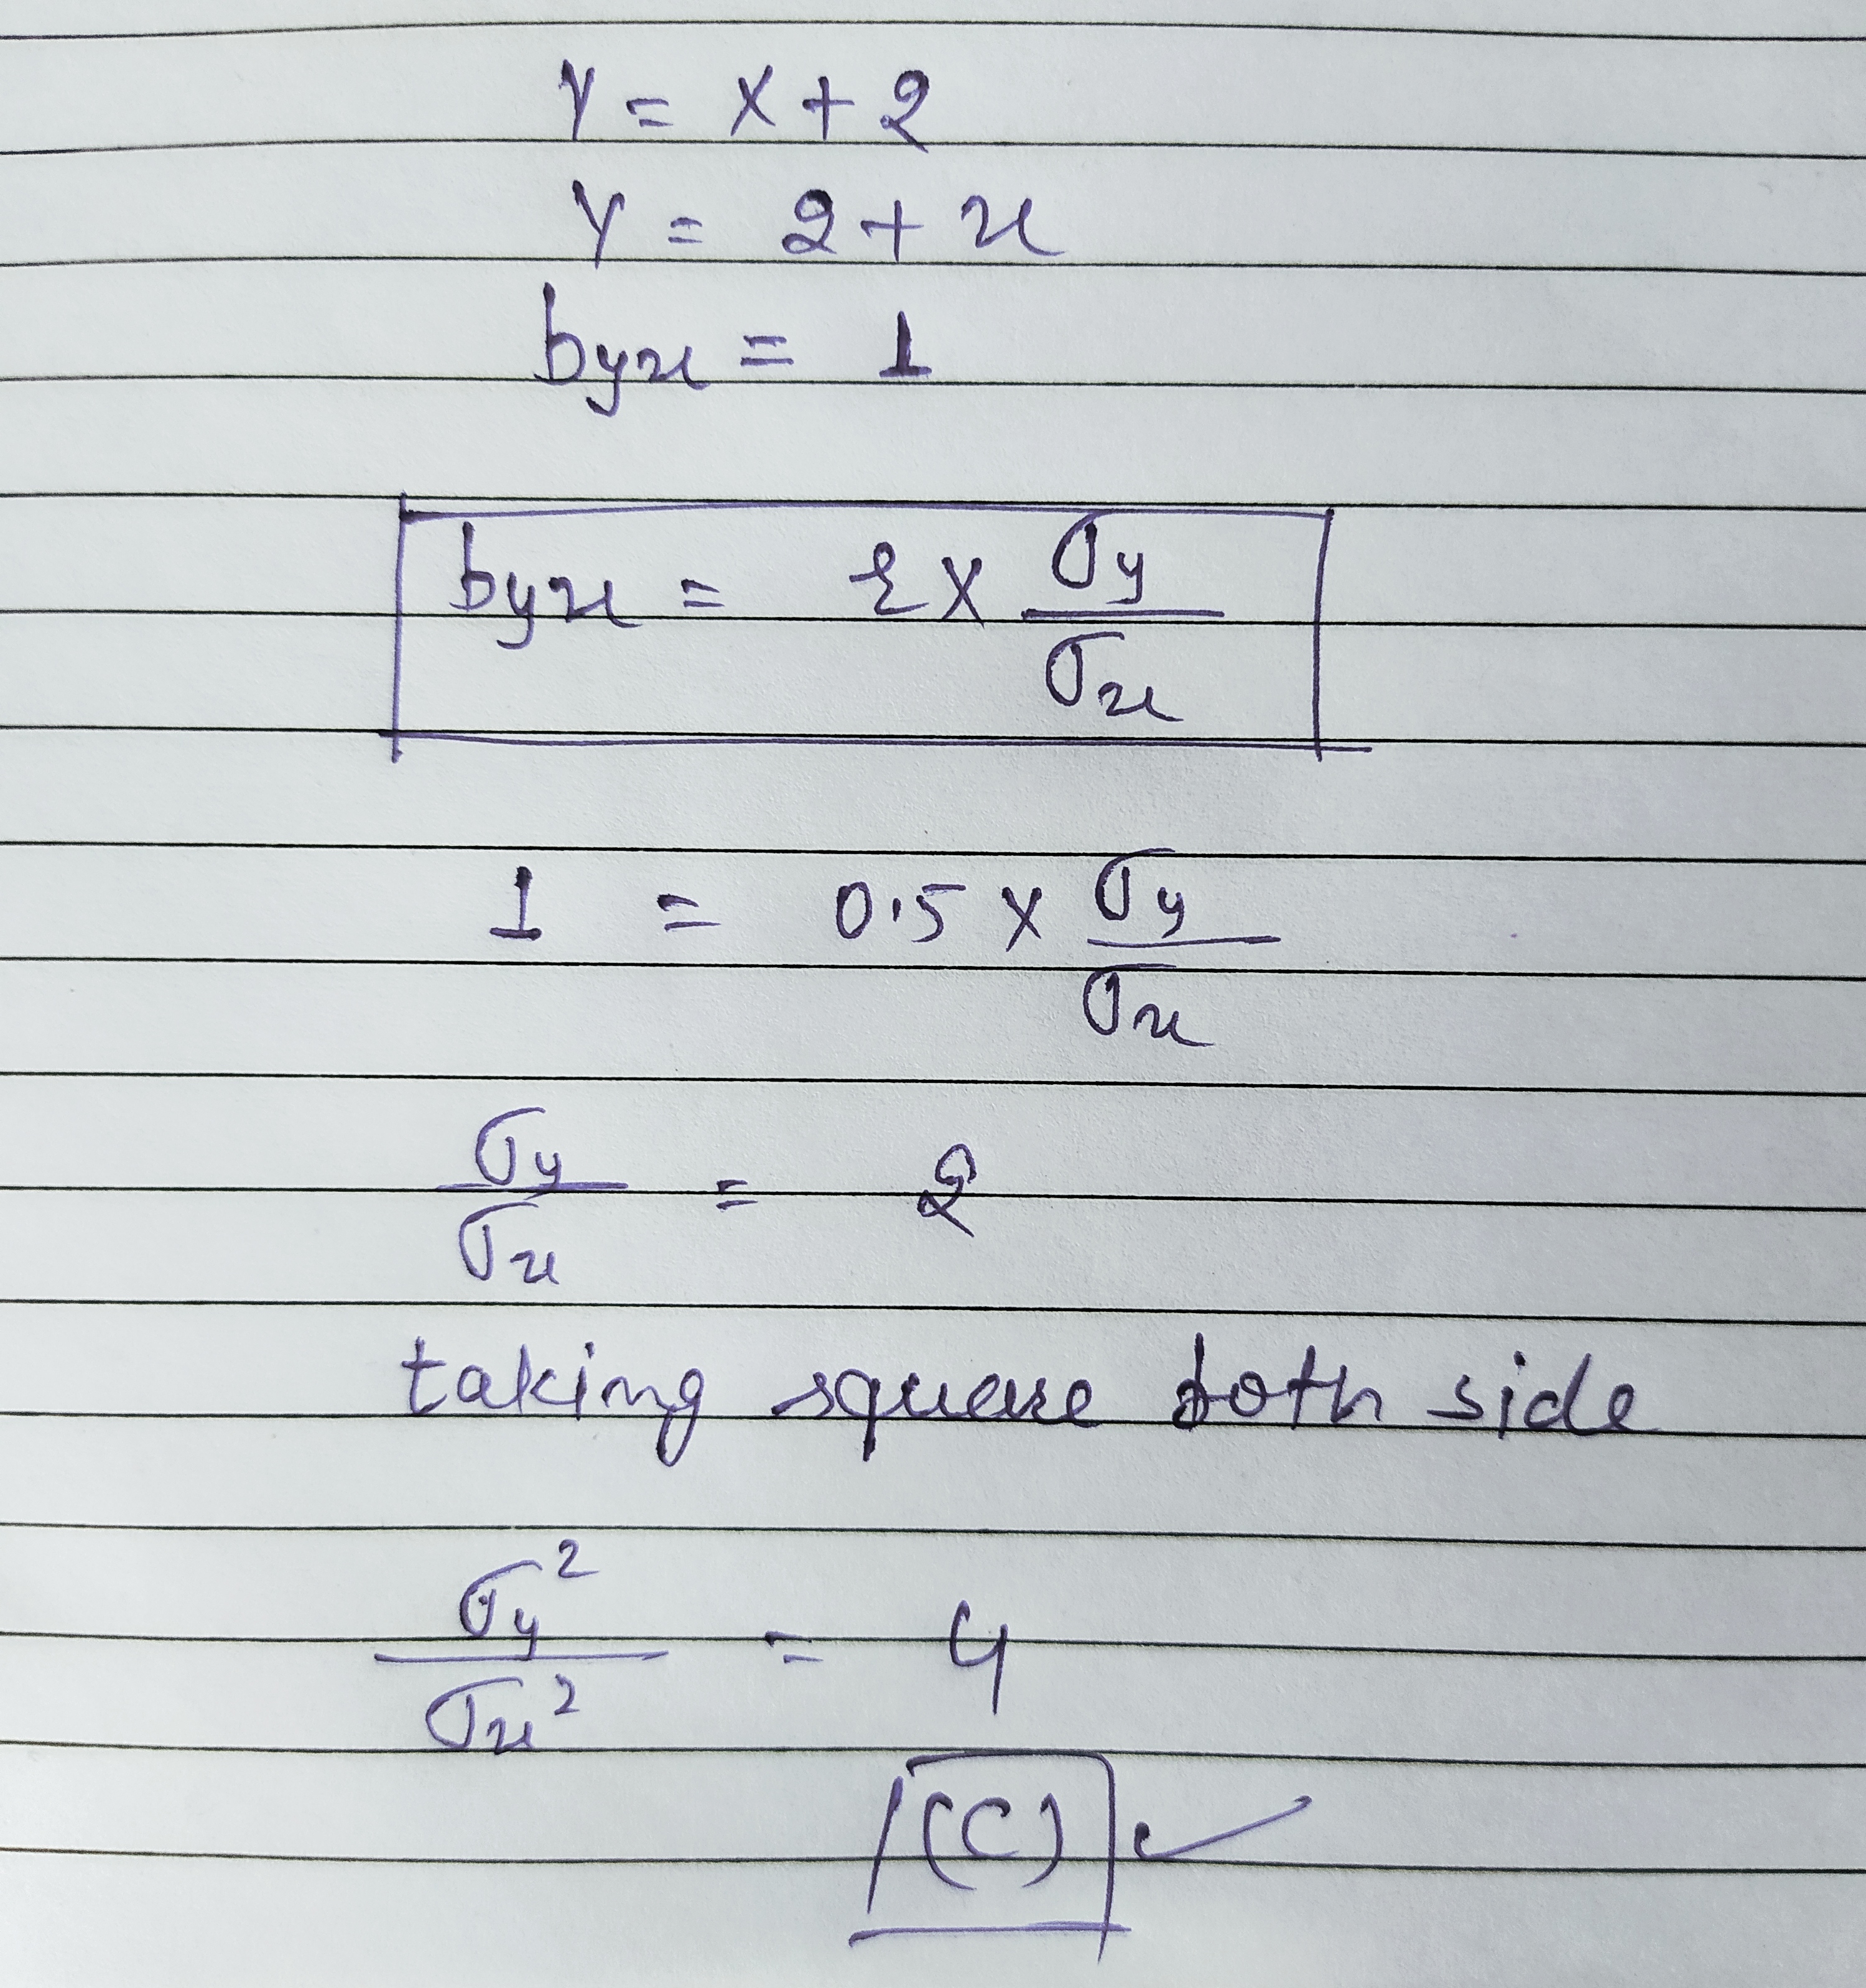 Y = X + 2
Y = 2 + x
byx = 1
byx = r × σy / σx
1 = 0.5 × σy / σx
σy / σx = 2
taking square both side
σy² / σx² = 4
(C) ✓